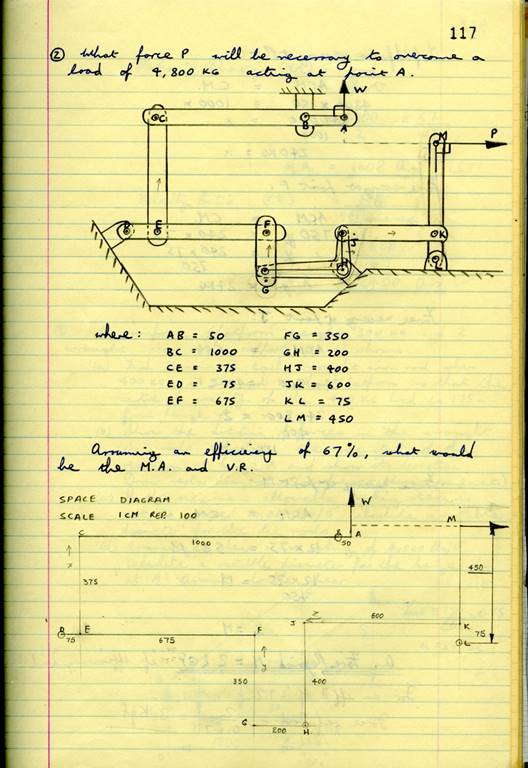 117
② What force P will be necessary to overcome a
load of 4,800 KG acting at point A.
W
C B A M P
D E F J K
G H L
where: AB = 50 FG = 350
BC = 1000 GH = 200
CE = 375 HJ = 400
ED = 75 JK = 600
EF = 675 KL = 75
LM = 450
Assuming an efficiency of 67%, what would
be the M.A. and V.R.
SPACE DIAGRAM
SCALE 1CM REP. 100
W
M
C 1000 B 50 A
x
375 450
J Z 600 K
D 75 E 675 F 75 L
y
350 400
G 200 H